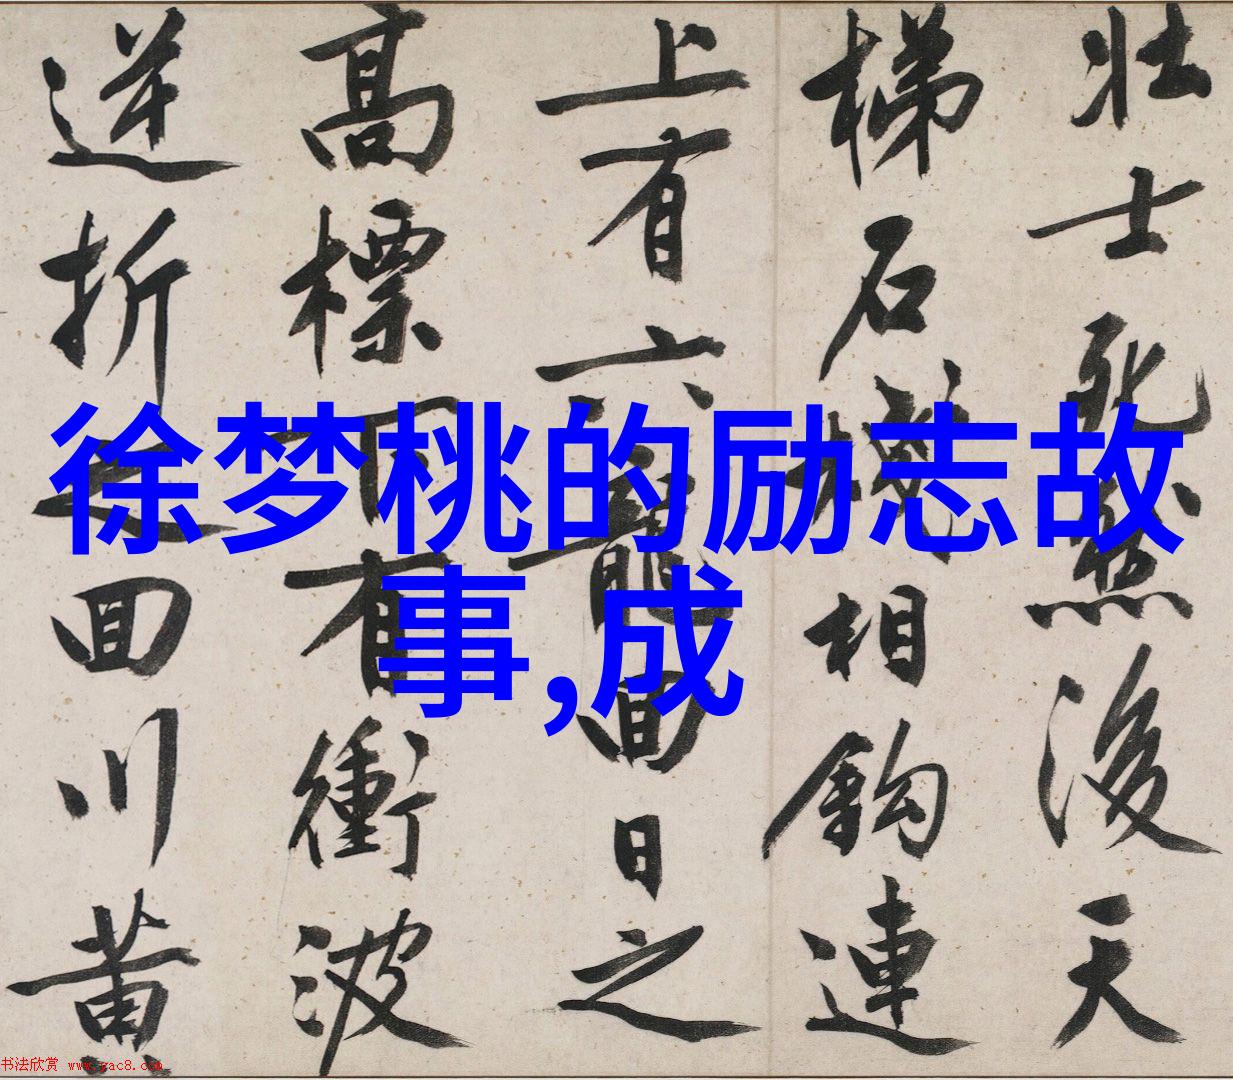 壮士死然後天
梯石棧相鉤連
上有六龍回日之
高標下有衝波
逆折之回川黄
徐梦桃的励志故
事,成
书法欣赏 www.yac8.com